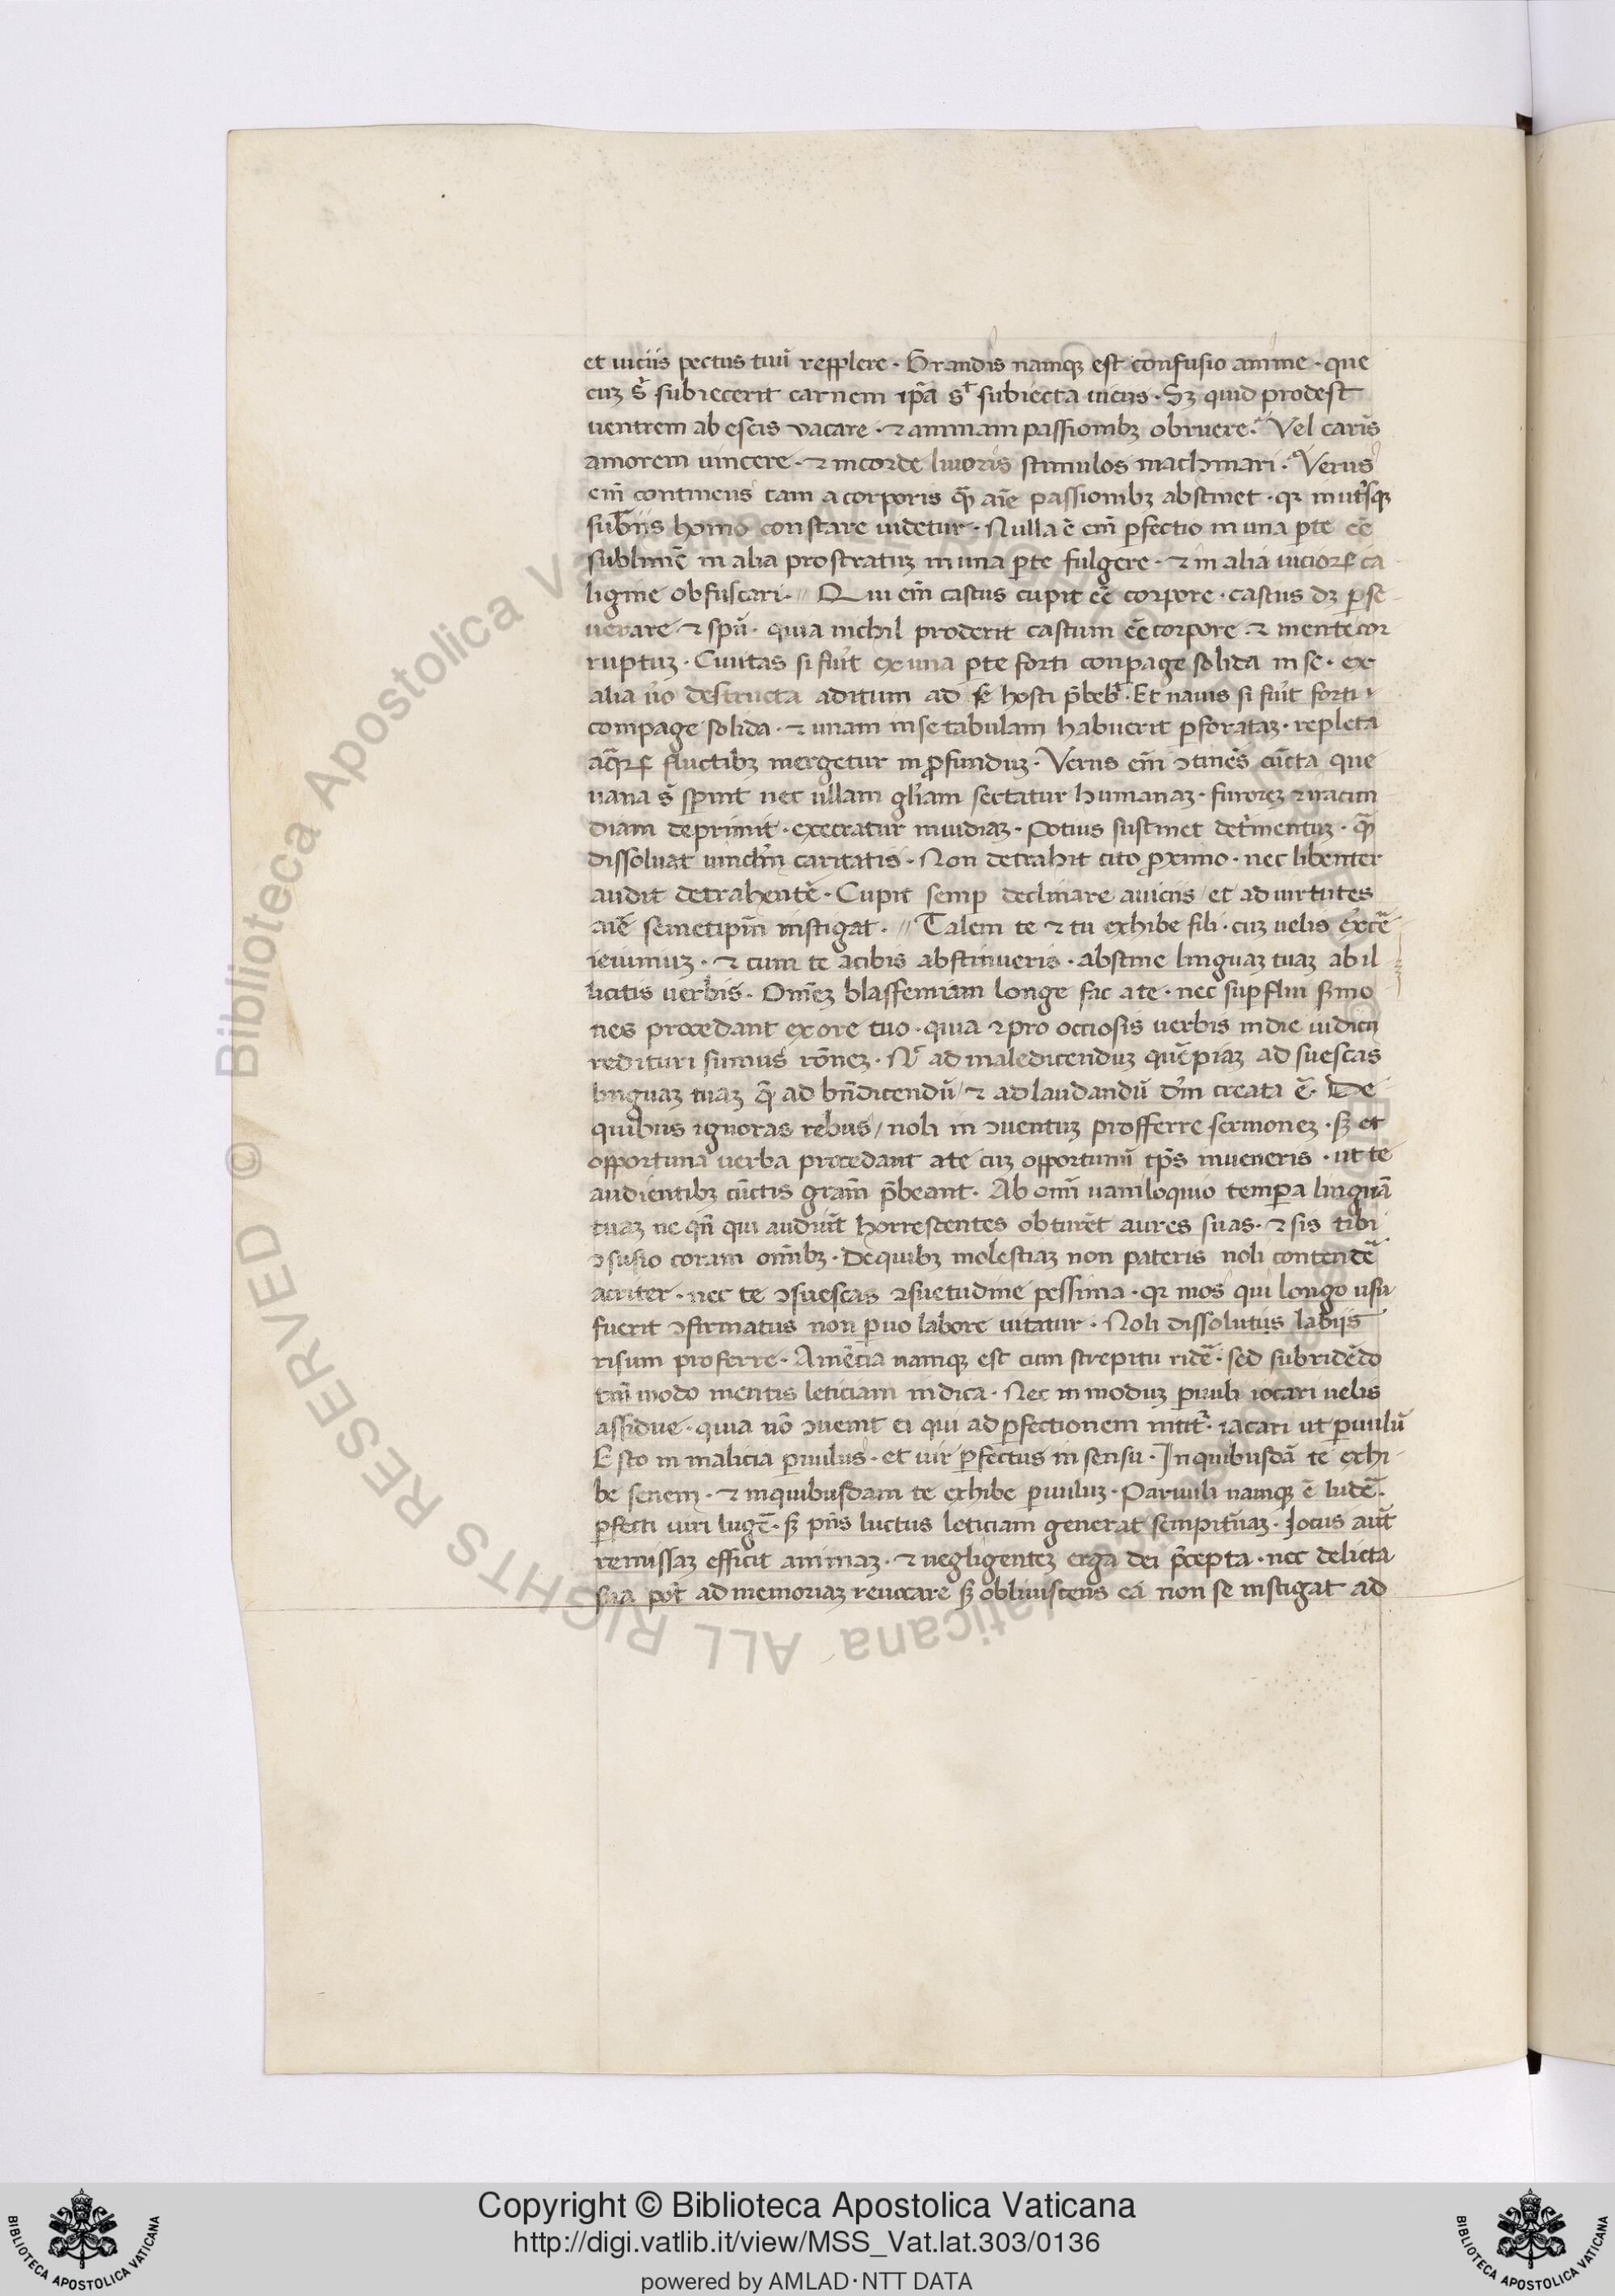 et uiciis pectus tuũ repplere · Grandis namqꝫ est confusio anime · que
cuꝫ s̃ subiecerit carnem ip̃a sͭ subiecta uiciis · Sꝫ quid prodest
uentrem ab escis vacare · ⁊ animam passionibꝫ obruere · Vel carĩs
amorem uincere · ⁊ in corde liuoris stimulos machinari · Verus
em̃ continens tam a corporis qᷓ aĩe passionibꝫ abstinet · qꝛ in utͥsqꝫ
sub̃iis homo constare uidetur · Nulla ẽ em̃ ꝑfectio in una ꝑte eẽ
sublimẽ in alia prostratuꝫ in una ꝑte fulgere · ⁊ in alia uicioꝝ ca
ligine obfuscari · // Qui em̃ castus cupit eẽ corpore · castus dꝫ ꝑse-
uerare ⁊ spũ · quia nichil proderit castum eẽ corpore · ⁊ mente cor
ruptuꝫ · Ciuitas si fũit ex una ꝑte forti conpage solida in se · ex
alia ũo destructa aditum ad se hosti p̃bebͭ · Et nauis si fũit forti
compage solida · ⁊ unam in se tabulam habuerit ꝑforataꝫ · repleta
aq̃ꝝ fluctibꝫ mergetur in ꝓfunduꝫ · Verus em̃ ↄtinẽs cũcta que
uana s̃ sꝑnit nec ullam gl̃iam sectatur humanaꝫ · furoreꝫ ⁊ iracun
diam deprimit · execratur inuidiaꝫ · Potius sustinet det̃mentuꝫ · qᷓ
dissoluat uincl̃m caritatis · Non detrahit cito ꝓximo · nec libenter
audit detrahentẽ · Cupit semꝑ declinare a uiciis / et ad uirtutes
aĩe semetip̃m instigat · // Talem te ⁊ tu exhibe fili · cuꝫ uelis ex̃cẽ
ieiuniuꝫ · ⁊ cum te a cibis abstinueris · abstine linguaꝫ tuaꝫ ab il
licitis uerbis · Om̃eꝫ blasfemiam longe fac a te · nec suꝑflui s̃mo
nes procedant ex ore tuo · quia ⁊ pro occiosis uerbis in die iudicii
reddituri sumus rõneꝫ · Nͨ ad maledicenduꝫ quẽpiaꝫ adsuescas
linguaꝫ tuaꝫ q̃ ad bñdicendũ / ⁊ ad laudandũ dm̃ creata ẽ · De
quibus ignoras rebus / noli in ↄuentuꝫ profferre sermoneꝫ · sꝫ et
opportuna uerba procedant a te cuꝫ opportunũ tp̃s inueneris · ut te
audientibꝫ cũctis gram̃ p̃beant · Ab om̃i uaniloquio temꝑa linguã
tuaꝫ ne qñ qui audiũit horrescentes obturẽt aures suas · ⁊ sis tibi
ↄfusio coram om̃ibꝫ · De quibꝫ molestiaꝫ non pateris noli contendẽ
acriter · nec te ↄsuescas ↄsuetudine pessima · qꝛ mos qui longo usu
fuerit ↄfirmatus non ꝑuo labore uitatur · Noli dissolutis labiis
risum proferre · Amẽcia namqꝫ est cum strepitu ridẽ · sed subridẽdo
tm̃ modo mentis leticiam indica · Nec in moduꝫ ꝑuuli iocari uelis
assidue · quia nõ ↄuenit ei qui ad ꝑfectionem nititͬ · iacari ut ꝑuulũ
Esto in malicia ꝑuulus · et uir ꝑfectus in sensu · In quibusdã te exhi-
be senem · ⁊ in quibusdam te exhibe ꝑuuluꝫ · Paruuli namqꝫ ẽ ludẽ ·
ꝑfecti uiri lugẽ · sꝫ p̃ñs luctus leticiam generat sempit̃naꝫ · Iocus aũt
remissaꝫ efficit animaꝫ · ⁊ negligenteꝫ erga dei p̃cepta · nec delicta
sua põt ad memoriaꝫ reuocare sꝫ obliuiscens ea non se instigat ad
© Biblioteca Apostolica Vaticana ALL RIGHTS RESERVED
Copyright © Biblioteca Apostolica Vaticana
http://digi.vatlib.it/view/MSS_Vat.lat.303/0136
powered by AMLAD·NTT DATA
BIBLIOTECA APOSTOLICA VATICANA
BIBLIOTECA APOSTOLICA VATICANA